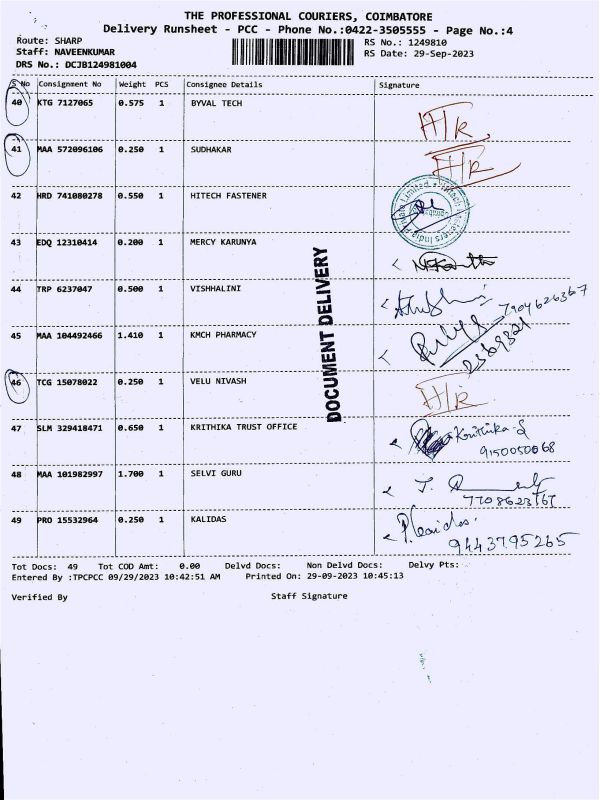 THE PROFESSIONAL COURIERS, COIMBATORE
Delivery Runsheet - PCC - Phone No.:0422-3505555 - Page No.:4
Route: SHARP
RS No.: 1249810
Staff: NAVEENKUMAR
RS Date: 29-Sep-2023
DRS No.: DCJB124981004
S No Consignment No Weight PCS Consignee Details Signature
40 KTG 7127065 0.575 1 BYVAL TECH
41 MAA 572096106 0.250 1 SUDHAKAR
42 HRD 741080278 0.550 1 HITECH FASTENER
43 EDQ 12310414 0.200 1 MERCY KARUNYA
44 TRP 6237047 0.500 1 VISHHALINI
7904626367
45 MAA 104492466 1.410 1 KMCH PHARMACY
46 TCG 15078022 0.250 1 VELU NIVASH
47 SLM 329418471 0.650 1 KRITHIKA TRUST OFFICE Krithika-S
9150050068
48 MAA 101982997 1.700 1 SELVI GURU
7708623767
49 PRO 15532964 0.250 1 KALIDAS
9443795265
DOCUMENT DELIVERY
Tot Docs: 49 Tot COD Amt: 0.00 Delvd Docs: Non Delvd Docs: Delvy Pts:
Entered By :TPCPCC 09/29/2023 10:42:51 AM Printed On: 29-09-2023 10:45:13
Verified By Staff Signature